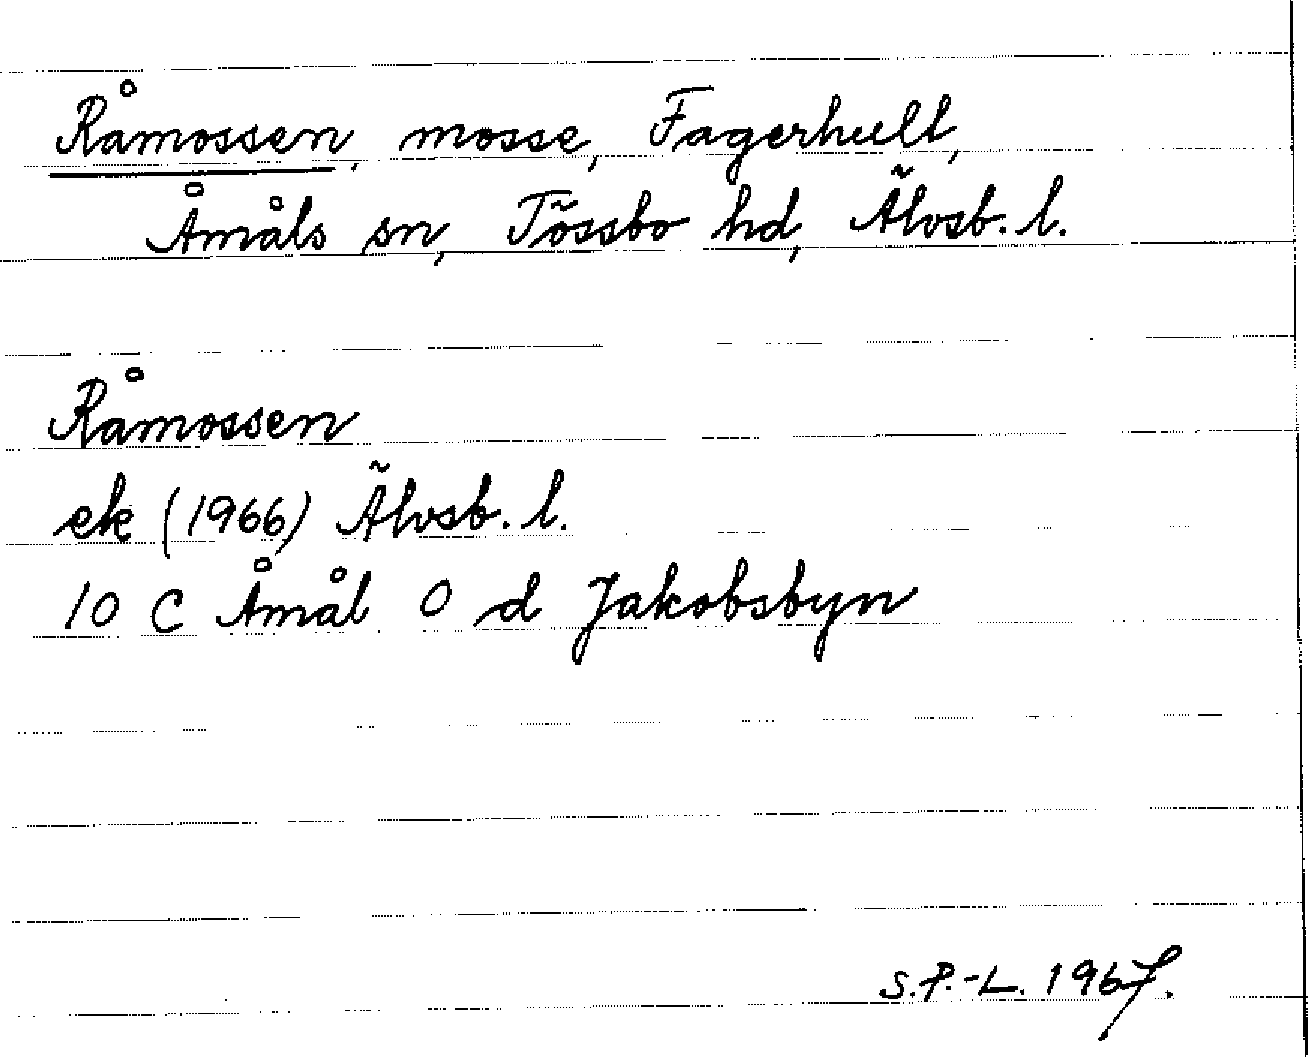 Råmossen, mosse, Fagerhult,
Åmåls sn, Tössbo hd, Älvsb. l.
Råmossen
ek (1966) Älvsb. l.
10 C Åmål 0 d Jakobsbyn
S.P.-L. 1967.